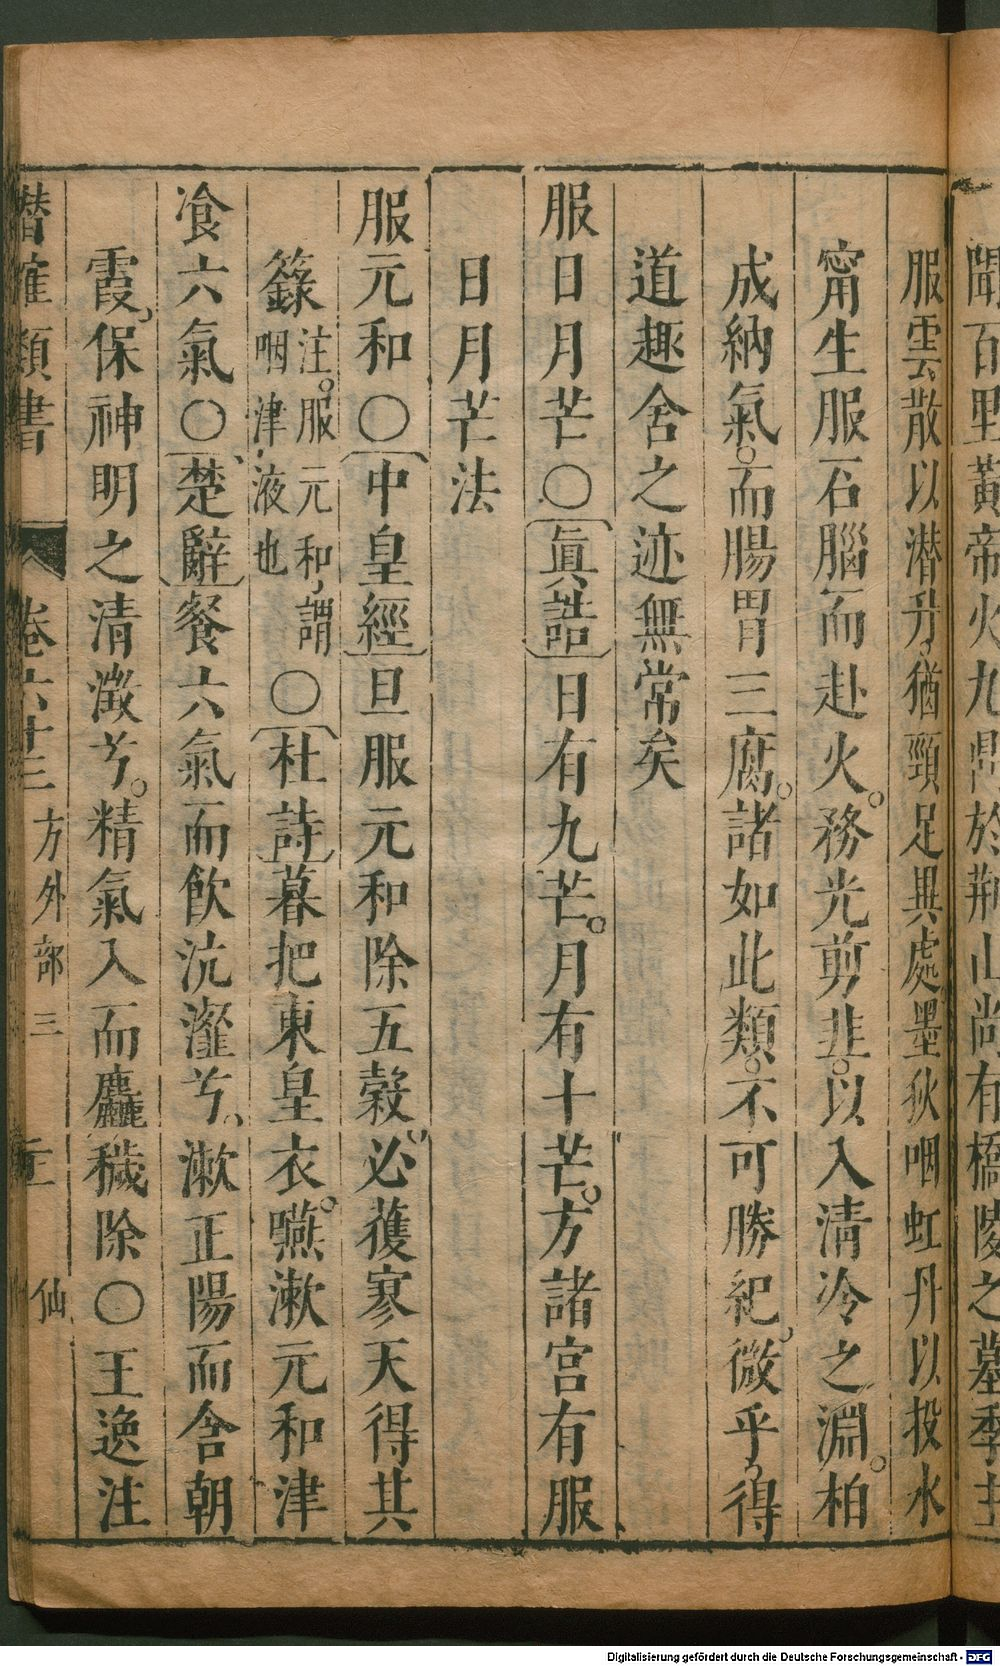 聞百里黃帝火九鼎於荆山尚有橋陵之墓季主
服雲散以潜升猶頸足異處墨狄咽虹丹以投水
甯生服石腦而赴火。務光剪韭。以入清冷之淵。柏
成納氣。而腸胃三腐。諸如此類。不可勝紀微乎得
道趣舍之迹無常矣
服日月芒〇眞誥日有九芒。月有十芒。方諸宮有服
日月芒法
服元和〇中皇經旦服元和除五穀必獲寥天得其
籙注。服元和謂咽津液也〇杜詩暮把東皇衣。嚥漱元和津
飡六氣〇楚辭餐六氣而飲沆瀣兮漱正陽而含朝
霞保神明之清澂兮。精氣入而麤穢除〇王逸注
潛確類書 卷六十三 方外部三 仙
Digitalisierung gefördert durch die Deutsche Forschungsgemeinschaft - DFG